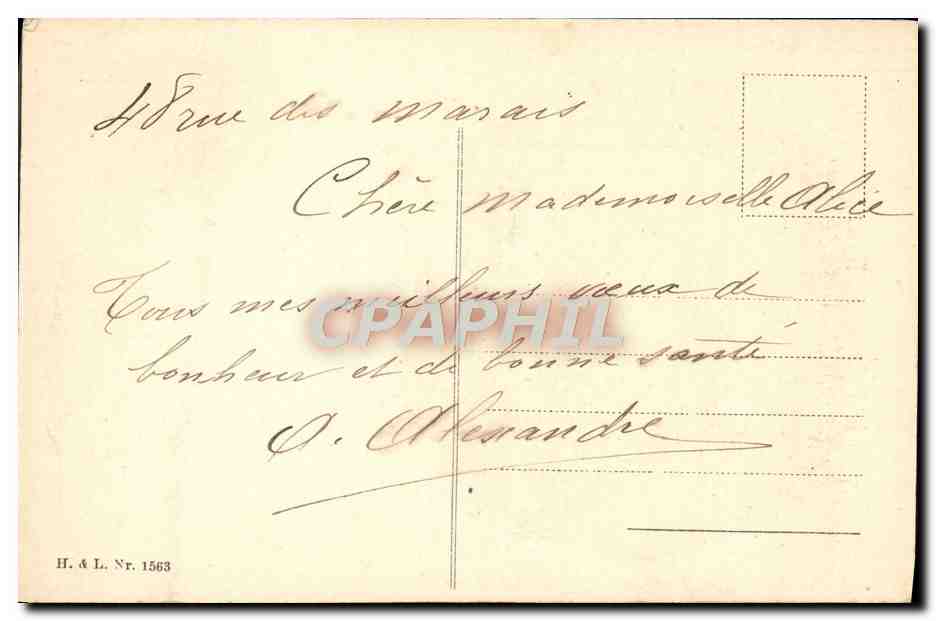 48 rue des marais
Chère mademoiselle Alice
Tous mes meilleurs vœux de
CPAPHIL
bonheur et de bonne santé
A. Alexandre
H. & L. Nr. 1563